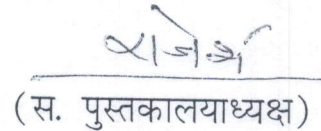 (स. पुस्तकालयाध्यक्ष)